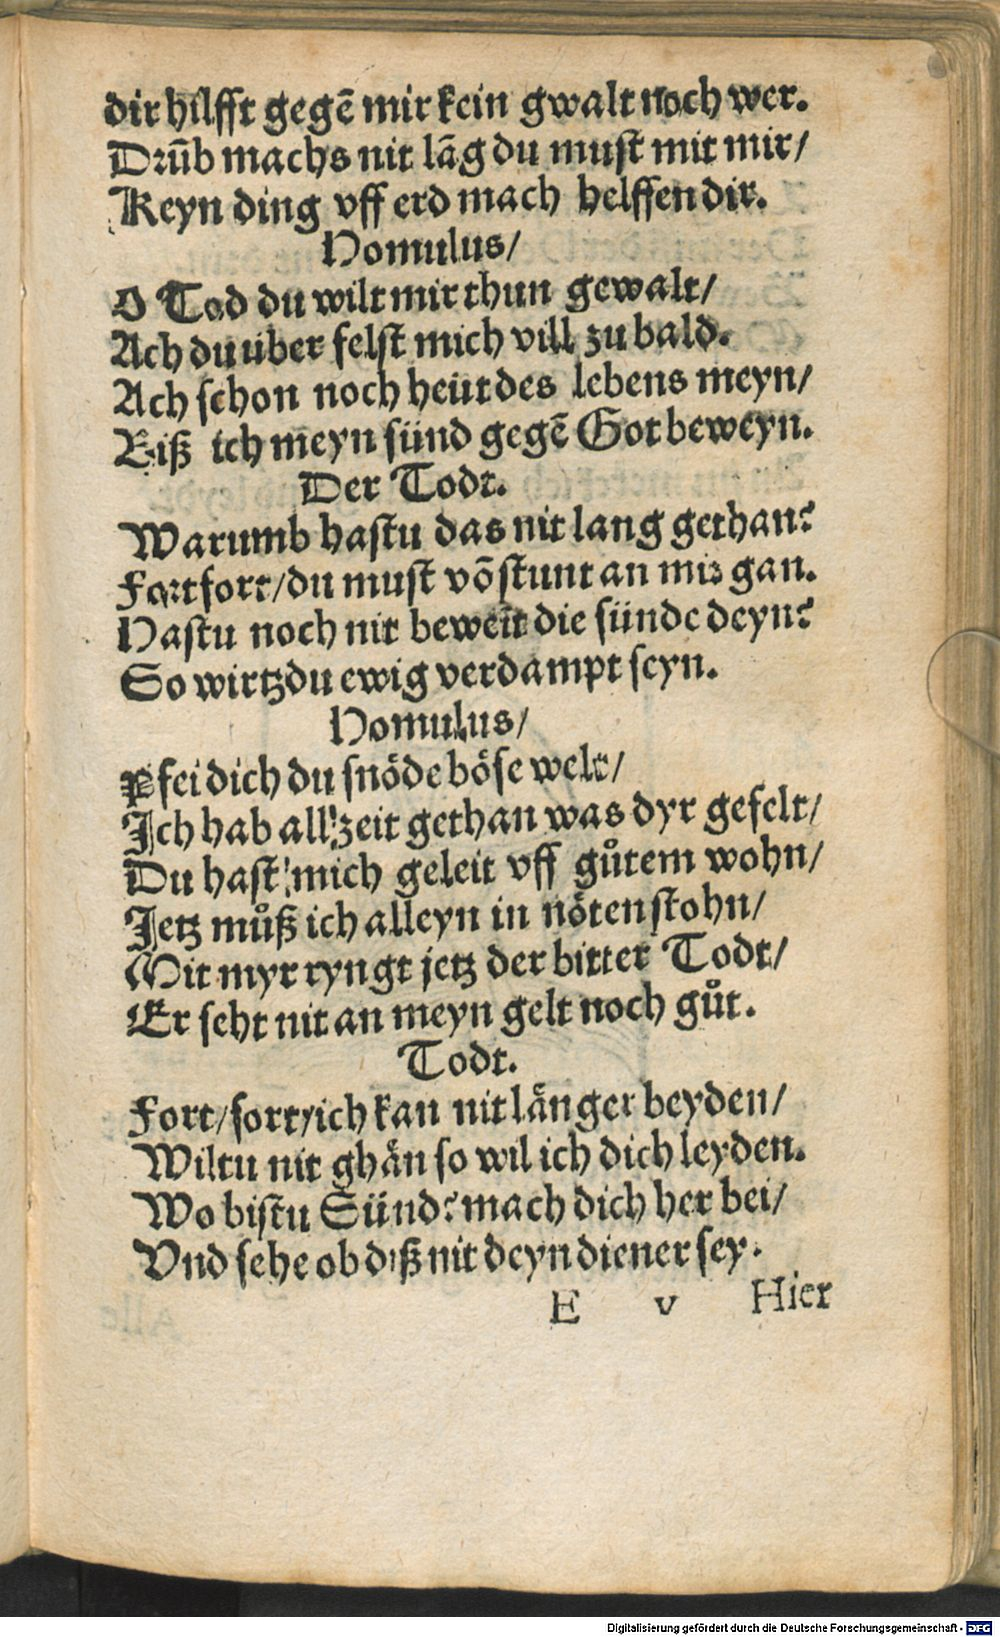 dir hilfft gegē mir kein gwalt noch wer.
Drūb machs nit lāg du must mit mir/
Keyn ding vff erd mach helffen dir.
Homulus/
O Tod du wilt mir thun gewalt/
Ach du über felst mich vill zu bald.
Ach schon noch heüt des lebens meyn/
Biß ich meyn sünd gegē Got beweyn.
Der Todt.
Warumb hastu das nit lang gethan?
Fort fort/du must vō stunt an mir gan.
Hastu noch nit beweīt die sünde deyn?
So wirtzdu ewig verdampt seyn.
Homulus/
Pfei dich du snöde böse welt/
Ich hab allzeit gethan was dyr gefelt/
Du hast mich geleit vff gůtem wohn/
Jetz můß ich alleyn in nöten stohn/
Mit myr ryngt jetz der bitter Todt/
Er seht nit an meyn gelt noch gůt.
Todt.
Fort/fort/ich kan nit länger beyden/
Wiltu nit ghän so wil ich dich leyden.
Wo bistu Sünd? mach dich her bei/
Vnd sehe ob diß nit deyn diener sey.
E v Hier
Digitalisierung gefördert durch die Deutsche Forschungsgemeinschaft - DFG